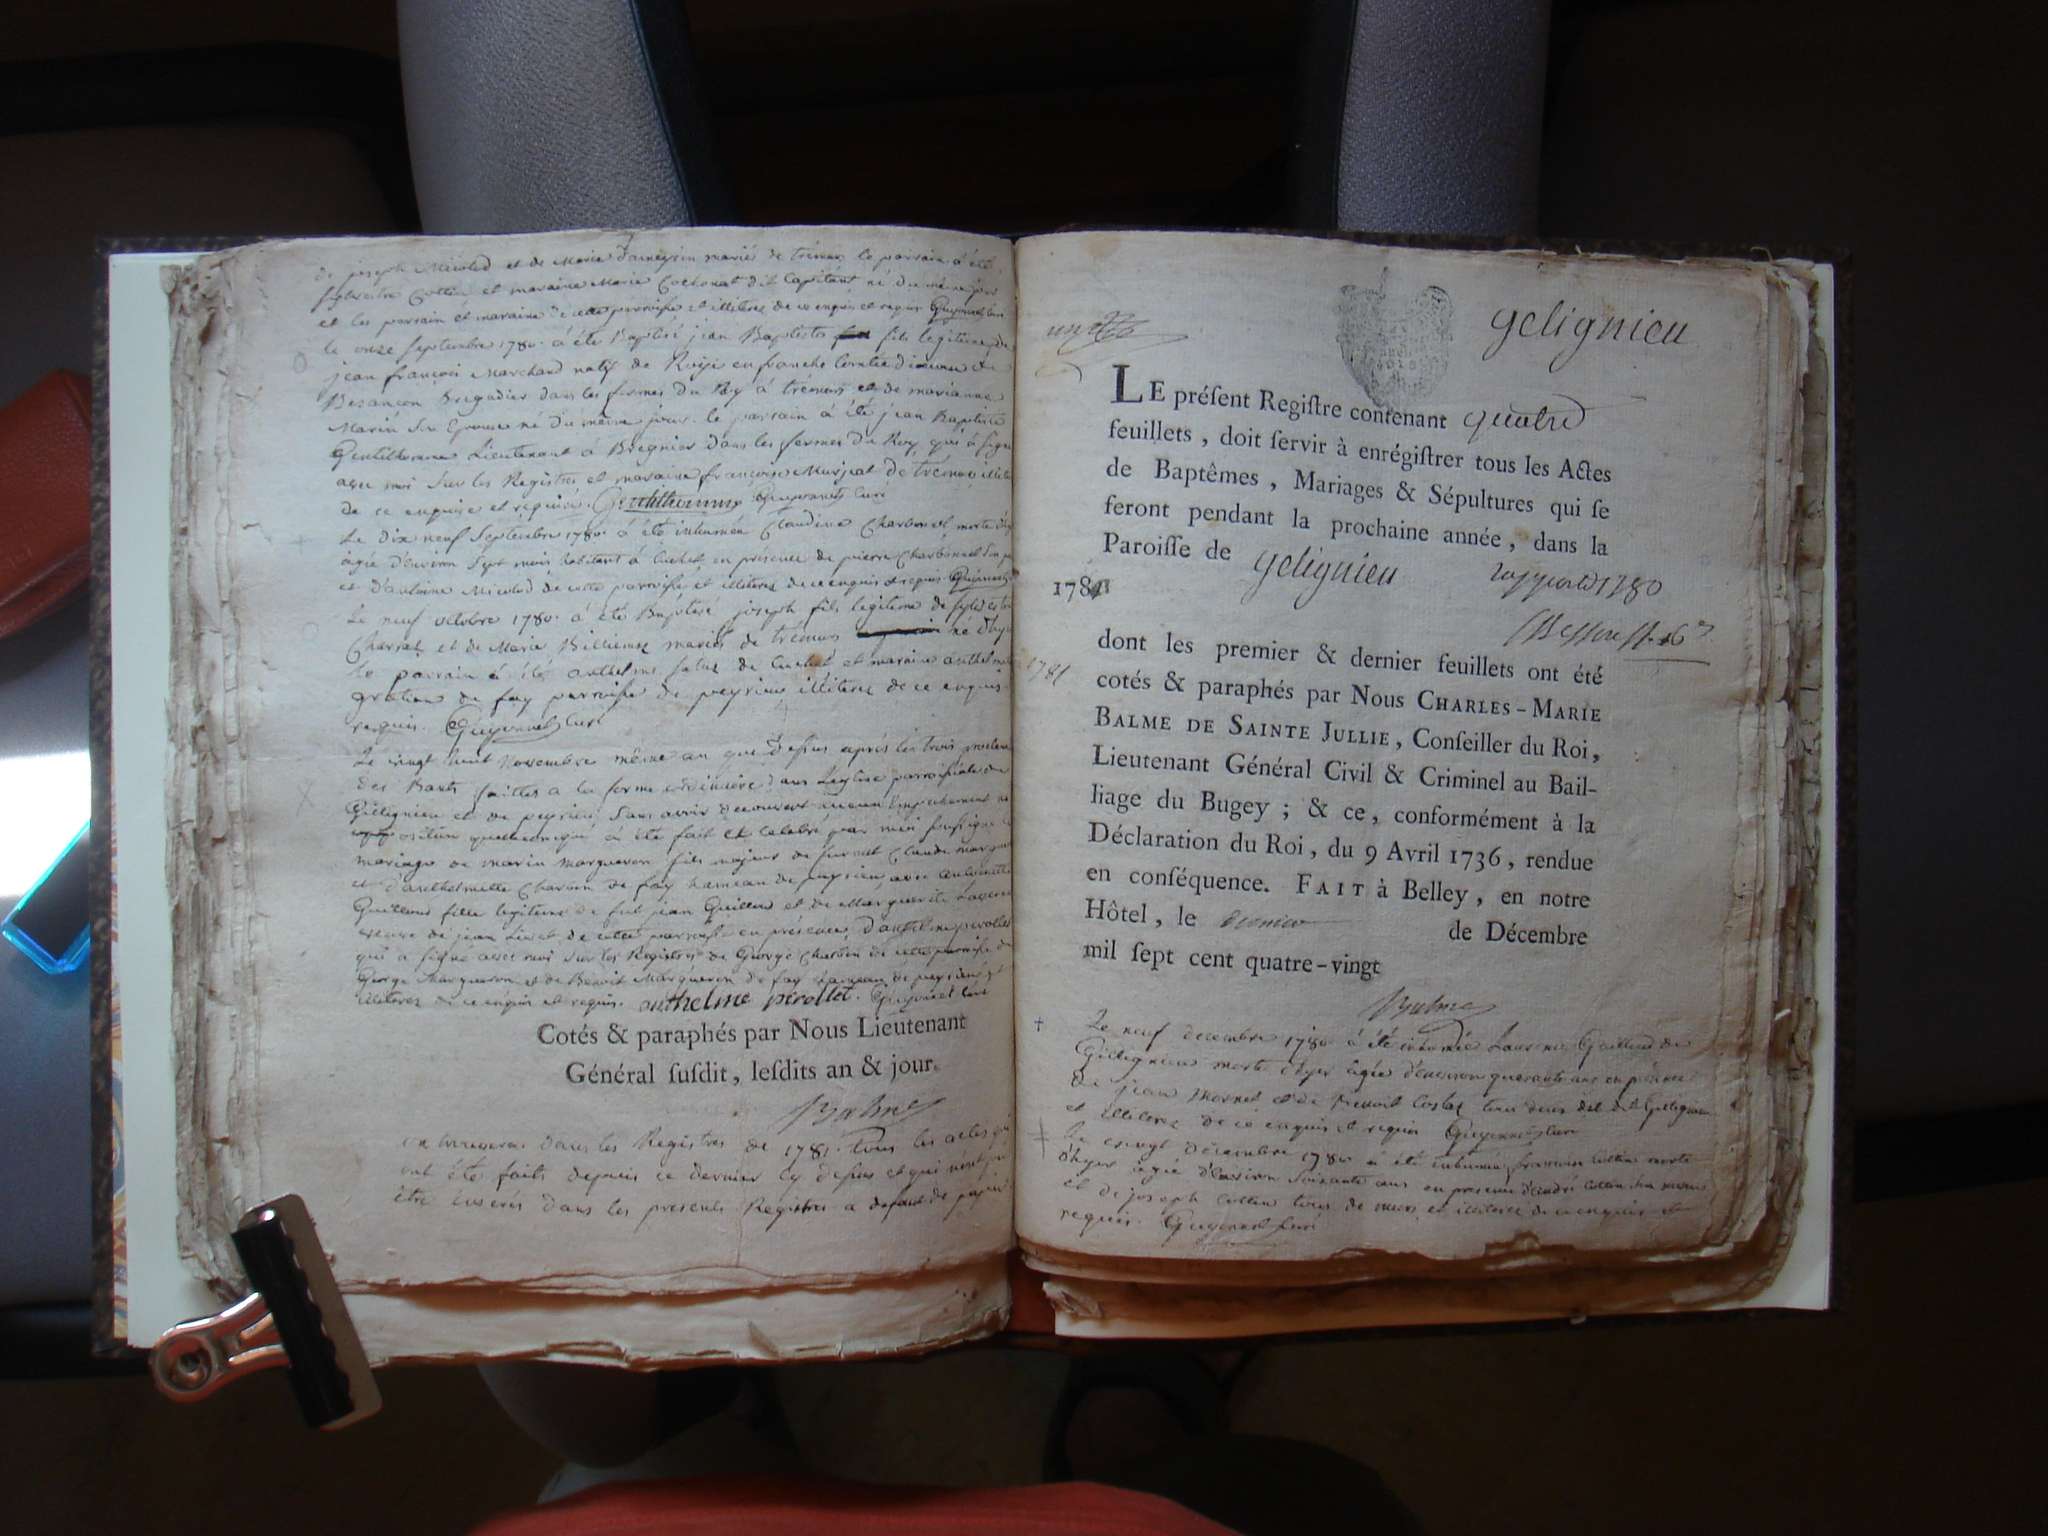 de joseph Nicolod et de Marie Dameysin mariés de trémurs le parrain à été
sylvestre Cottin et maraine Marie Cochonat dit Capitant né du même jour
et les parrain et maraine de cette parroisse et illiteres de ce enquis et requis Guyonnet curé
le onze septembre 1780. à été Baptisé jean Baptiste fils legitime de
jean françois Marchand natif de en franche Comtée diocese de
Besancon Brigadier dans les fermes du Roy à trémurs et de marianne
Marin son Epouse né du même jour. le parrain à été jean Baptiste
Gentilhomme Lieutenant à Bregnier dans les fermes du Roy, qui à signé
avec moi sur les Registres et maraine francoise de trémurs illitere
de ce enquise et requise. Gentilhomme Guyonnet curé
Le dix neuf Septembre 1780. à été inhumée Claudine Charbonel morte d'hyer
agée d'environ sept mois habitant à Cuchet en présence de pierre Charbonnel son pere
et d'antoine Nicolod de cette parroisse et illiteres de ce enquis et requis Guyonnet
Le neuf octobre 1780. à été Baptisé joseph fils legitime de sylvestre
Charrat et de Marie Billiemaz mariés de trémurs né d'hyer
le parrain à été anthelme de Cuchet et maraine anthelmette
de fay parroisse de peyrieu illiteres de ce enquis
requis. Guyonnet curé
Le vingt huit Novembre même an que dessus après les trois proclamations
des Bants faittes a la forme ordinaire dans Leglise parroissiale de
Gélignieu et de peyrieu sans avoir découvert aucun Empechement ni
opposition quelconque à été fait et celebré par moi soussigné le
mariage de marin margueron fils majeur de furent Claude margueron
et d'anthelmette Charvin de fay hameau de peyrieu, avec antoinette
Guilloud fille legitime de feu jean Guilloud et de Marguerite
veuve de jean de cette parroisse en présence d'anthelme perollet
qui a signé avec moi sur les Registres de George Charbon de cette parroisse de
George Margueron et de Benoit Margueron de fay hameau de peyrieu
illiteres de ce enquis et requis. anthelme pérollet. Guyonnet curé
Cotés & paraphés par Nous Lieutenant
Général susdit, lesdits an & jour.
Balme
on trouvera dans les Registres de 1781. tous les actes qui
ont été faits depuis ce dernier cy dessus et qui n'ont pu
être inserés dans les presents Registres a defaut de papier
gelignieu
LE présent Registre contenant quatre
feuillets, doit servir à enrégistrer tous les Actes
de Baptêmes, Mariages & Sépultures qui se
feront pendant la prochaine année, dans la
Paroisse de gelignieu
1781
1780
1781
dont les premier & dernier feuillets ont été
cotés & paraphés par Nous CHARLES-MARIE
BALME DE SAINTE JULLIE, Conseiller du Roi,
Lieutenant Général Civil & Criminel au Bail-
liage du Bugey ; & ce, conformément à la
Déclaration du Roi, du 9 Avril 1736, rendue
en conséquence. FAIT à Belley, en notre
Hôtel, le dernier de Décembre
mil sept cent quatre-vingt
Balme
Le neuf decembre 1780 à été inhumée Laurence Guilloud de
Gélignieu morte d'hyer agée d'environ quarante ans en présence
de jean Mornet et de Benoit Costaz tous deux dud. Gelignieu
et illiteres de ce enquis et requis Guyonnet curé
Le vingt décembre 1780 à été inhumé francois Cottin morte
d'hyer agée d'environ soixante ans en présence d'andré Cottin son
et de joseph Cottin tous de murs et illiteres de ce enquis et
requis. Guyonnet curé